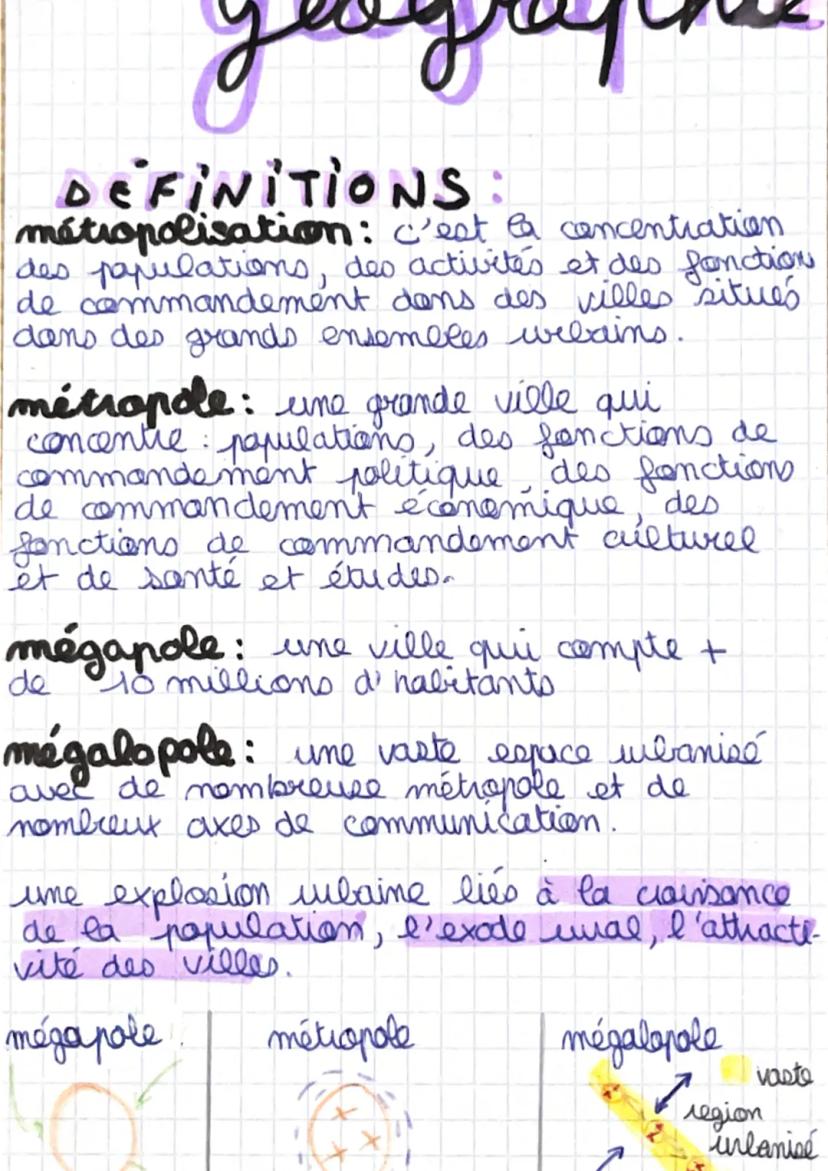 géographie
DÉFINITIONS :
métropolisation : c'est la concentration
des populations, des activités et des fonction
de commandement dans des villes situés
dans des grands ensembles urbains.
métropole : une grande ville qui
concentre : populations, des fonctions de
commandement politique, des fonctions
de commandement économique, des
fonctions de commandement culturel
et de santé et études.
mégapole : une ville qui compte +
de 10 millions d'habitants
mégalopole : une vaste espace urbanisé
avec de nombreuse métropole et de
nombreux axes de communication.
une explosion urbaine liés à la croissance
de la population, l'exode rural, l'attracti-
vité des villes.
mégapole métropole mégalopole
vaste
region
urbanisé